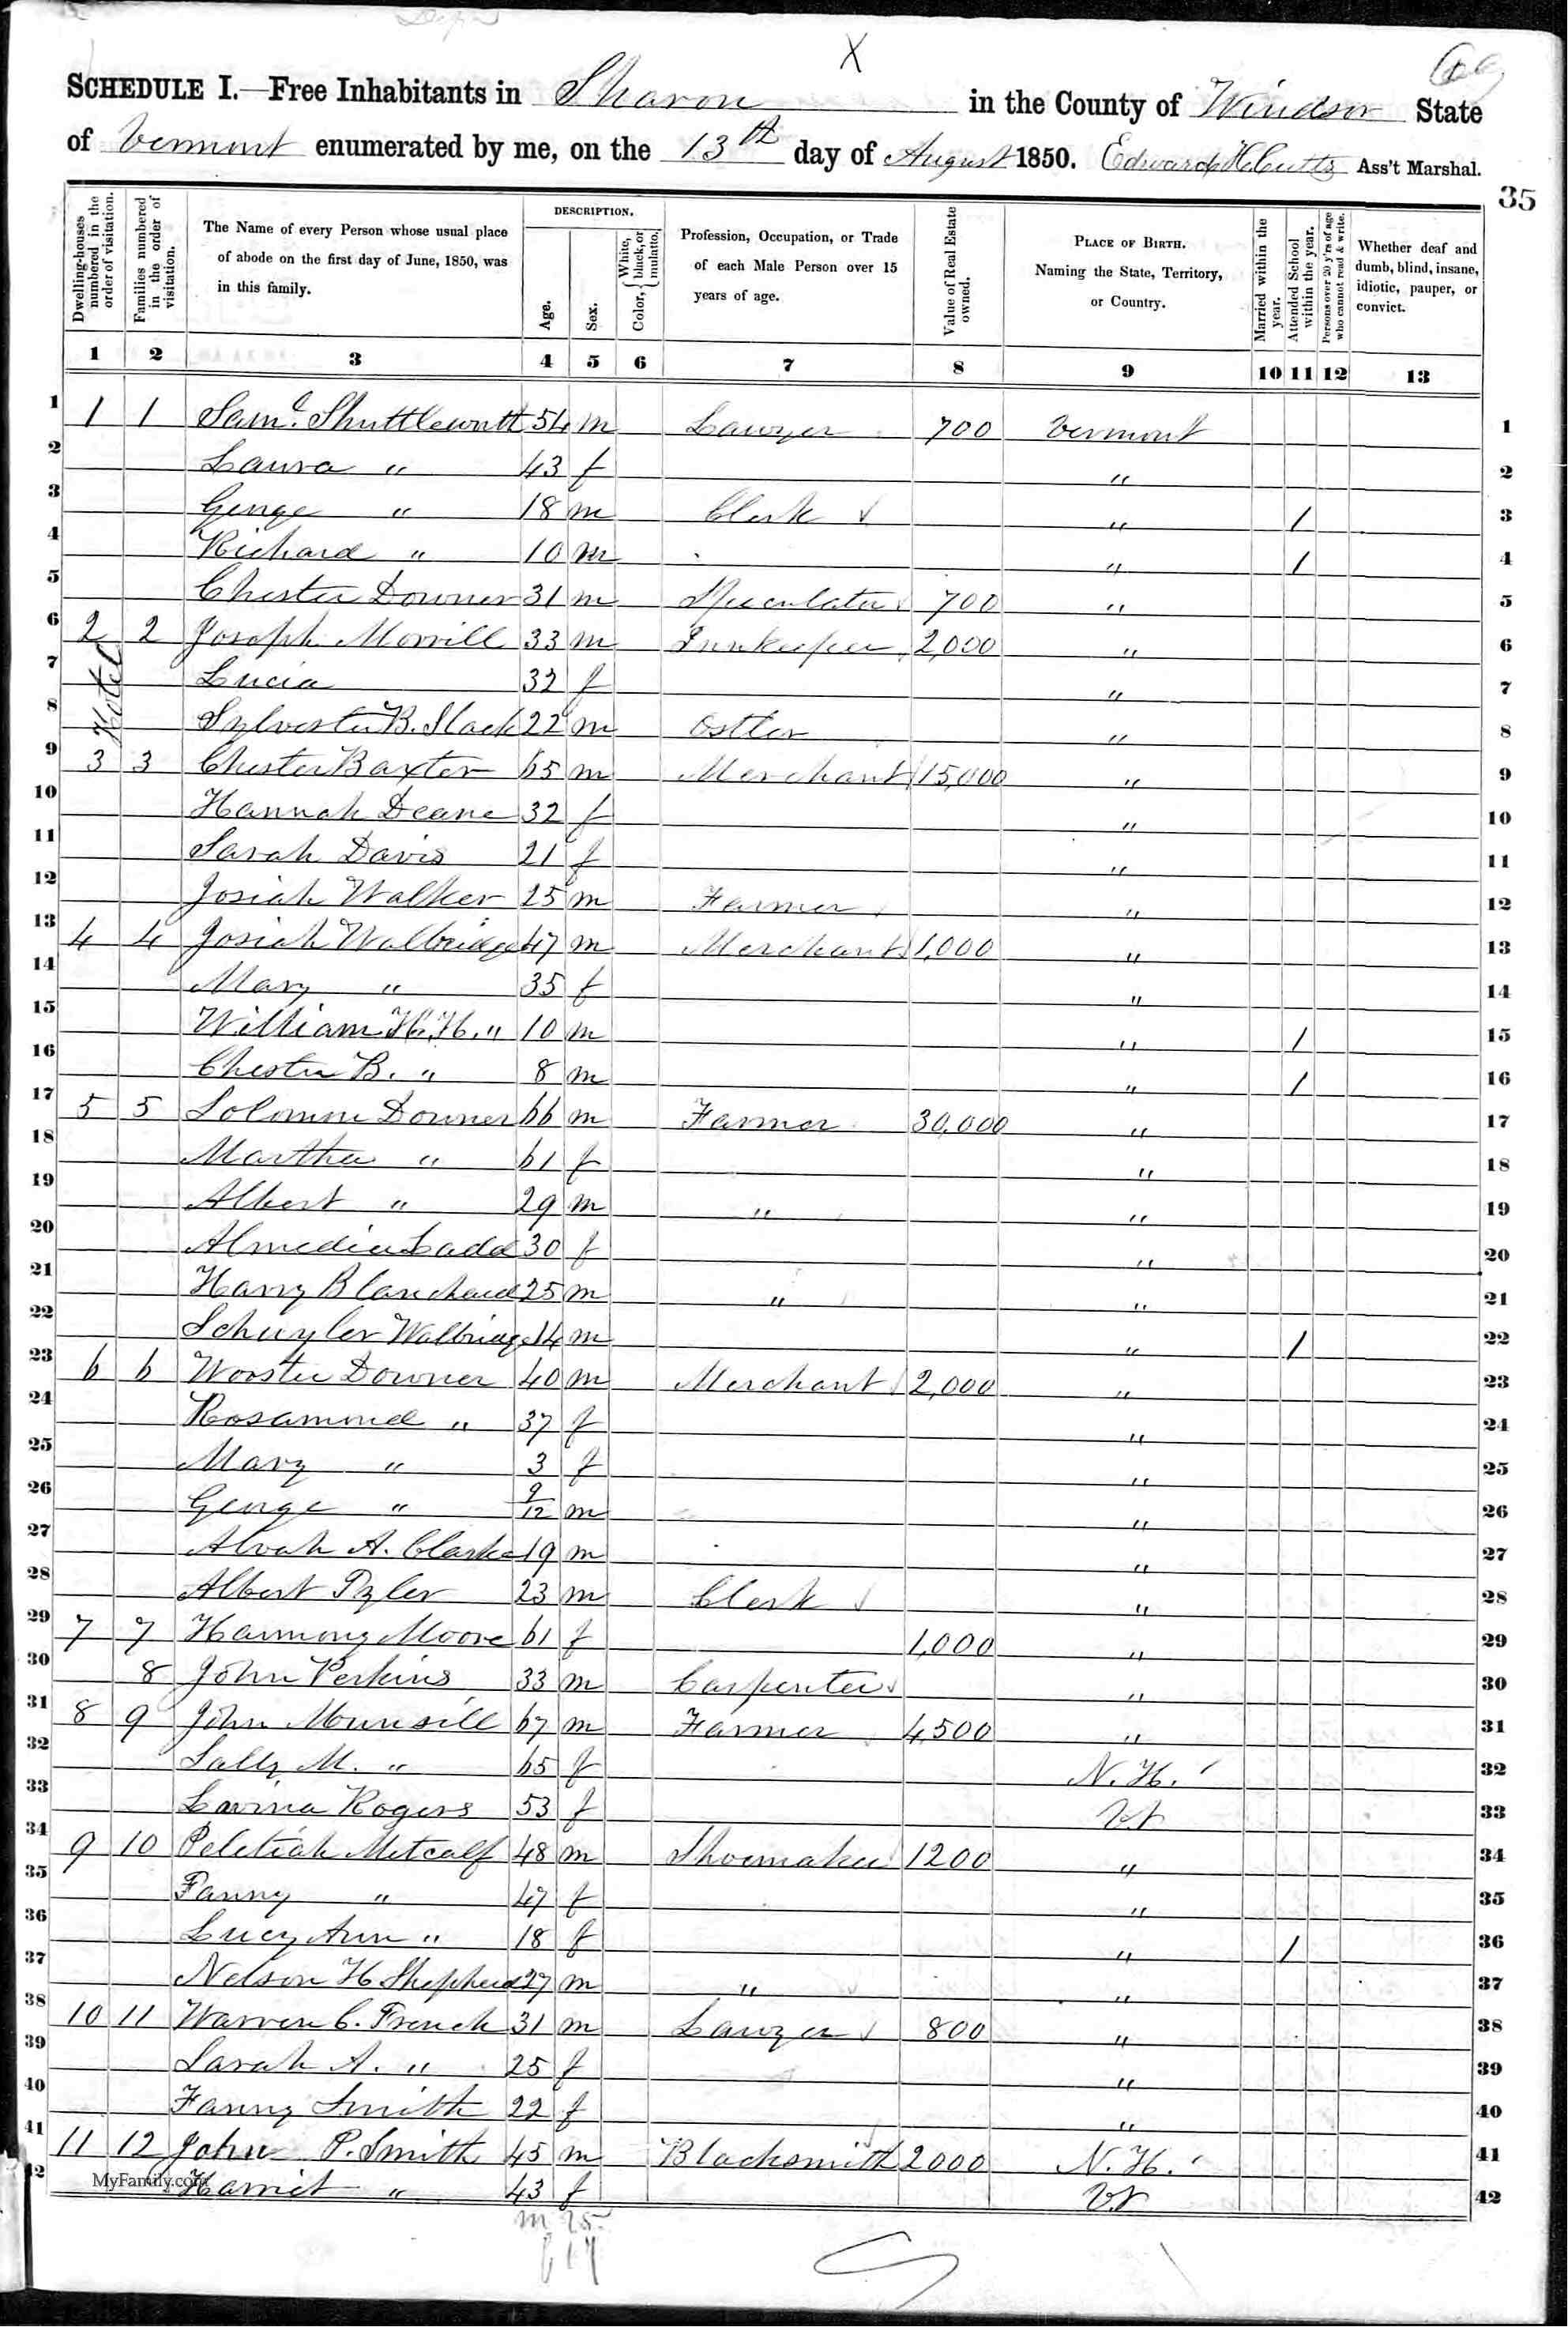 SCHEDULE I.—Free Inhabitants in Sharon in the County of Windsor State
of Vermont enumerated by me, on the 13th day of August 1850. Edward H. Cutts Ass't Marshal.
35
Dwelling-houses numbered in the order of visitation.
Families numbered in the order of visitation.
The Name of every Person whose usual place of abode on the first day of June, 1850, was in this family.
DESCRIPTION.
Age.
Sex.
Color, { White, black, or mulatto.
Profession, Occupation, or Trade of each Male Person over 15 years of age.
Value of Real Estate owned.
PLACE OF BIRTH. Naming the State, Territory, or Country.
Married within the year.
Attended School within the year.
Persons over 20 y'rs of age who cannot read & write.
Whether deaf and dumb, blind, insane, idiotic, pauper, or convict.
1 2 3 4 5 6 7 8 9 10 11 12 13
1 1 1 Saml. Shuttlewott 54 m Lawyer 700 Vermont 1
2 Laura " 43 f " 2
3 George " 18 m Clerk " / 3
4 Richard " 10 m " / 4
5 Chester Downer 31 m Speculator 700 " 5
6 2 2 Joseph Morrill 33 m Innkeeper 2,000 " 6
Hotel
7 Lucia 32 f " 7
8 Sylvester B. Slack 22 m Ostler " 8
9 3 3 Chester Baxter 65 m Merchant 15,000 " 9
10 Hannah Deane 32 f " 10
11 Sarah Davis 21 f " 11
12 Josiah Walker 25 m Farmer " 12
13 4 4 Josiah Walbridge 47 m Merchant 1,000 " 13
14 Mary " 35 f " 14
15 William H. H. " 10 m " / 15
16 Chester B. " 8 m " / 16
17 5 5 Solomon Downer 66 m Farmer 30,000 " 17
18 Martha " 61 f " 18
19 Albert " 29 m " " 19
20 Almedia Ladd 30 f " 20
21 Harry Blanchard 25 m " " 21
22 Schuyler Walbridge 14 m " / 22
23 6 6 Wooster Downer 40 m Merchant 2,000 " 23
24 Rosamond " 37 f " 24
25 Mary " 3 f " 25
26 George " 9/12 m " 26
27 Alvah A. Clarke 19 m " 27
28 Albert Tyler 23 m Clerk " 28
29 7 7 Harmony Moore 61 f 1,000 " 29
30 8 John Perkins 33 m Carpenter " 30
31 8 9 John Munsill 67 m Farmer 4,500 " 31
32 Sally M. " 65 f N. H. 32
33 Lavina Rogers 53 f Vt 33
34 9 10 Peletiah Metcalf 48 m Shoemaker 1200 " 34
35 Fanny " 47 f " 35
36 Lucy Ann " 18 f " / 36
37 Nelson H Shepherd 27 m " " 37
38 10 11 Warren C. French 31 m Lawyer 800 " 38
39 Sarah A. " 25 f " 39
40 Fanny Smith 22 f " 40
41 11 12 John P. Smith 45 m Blacksmith 2000 N. H. 41
42 Harriet " 43 f Vt 42
MyFamily.com
m 25
f 17